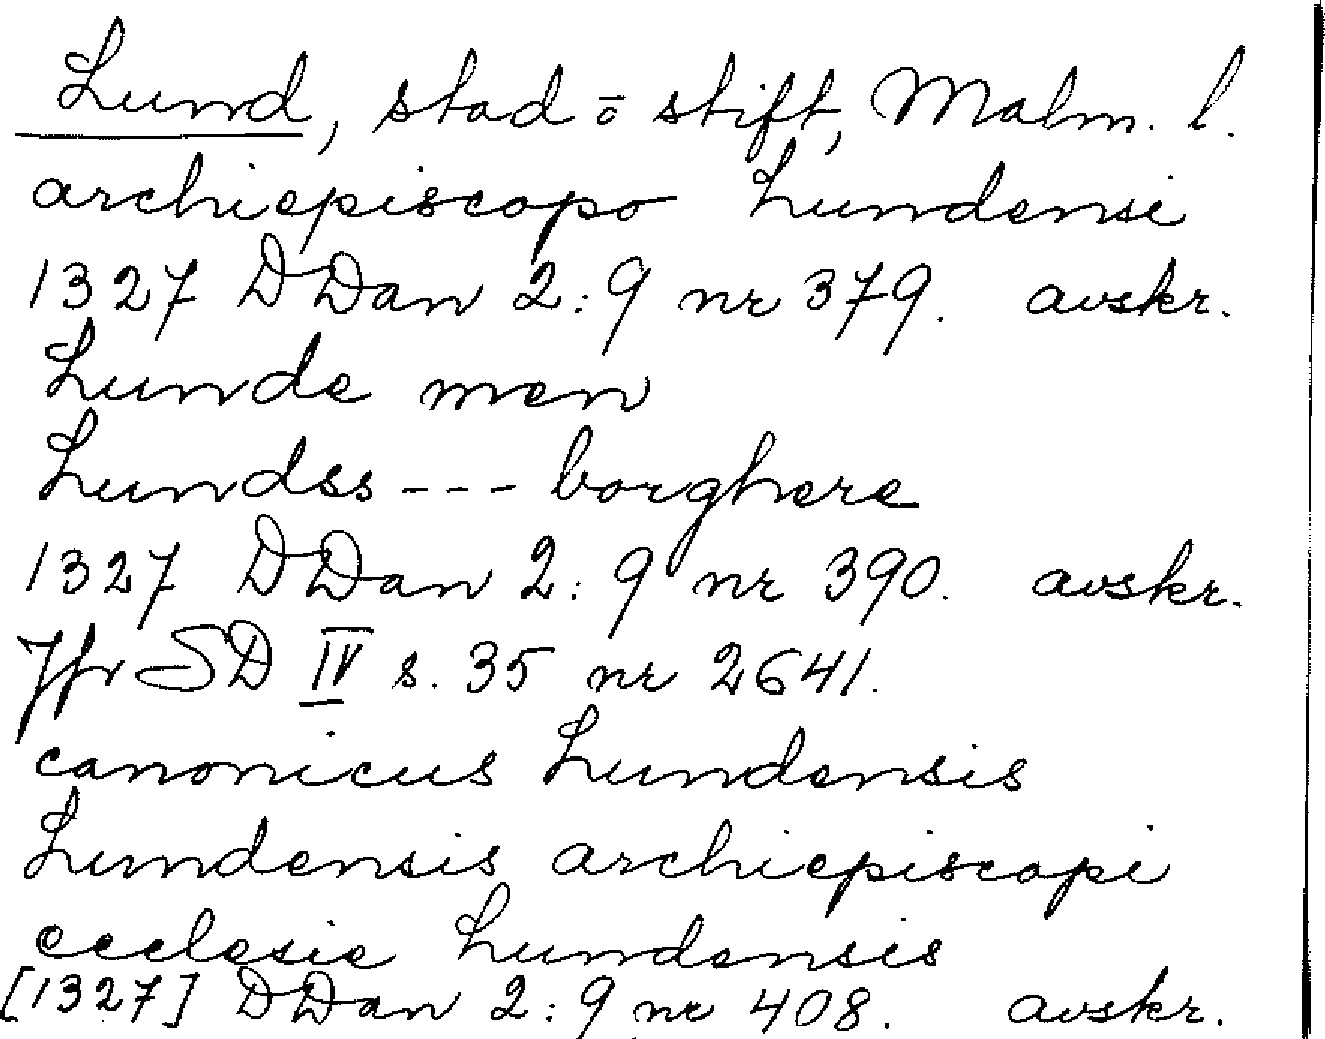 Lund, stad ō stift, Malm. l.
archiepiscopo Lundensi
1327 DDan 2:9 nr 379. avskr.
Lunde men
Lundss --- borghere
1327 DDan 2:9 nr 390. avskr.
Jfr SD IV s. 35 nr 2641.
canonicus Lundensis
Lundensis archiepiscopi
ecclesie Lundensis
[1327] DDan 2:9 nr 408. avskr.